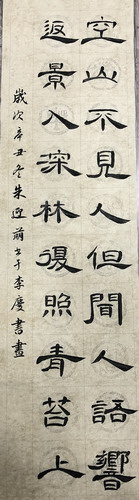 空山不見人但聞人語響
返景入深林復照青苔上
歲次辛丑冬朱迎前书于李慶書畫